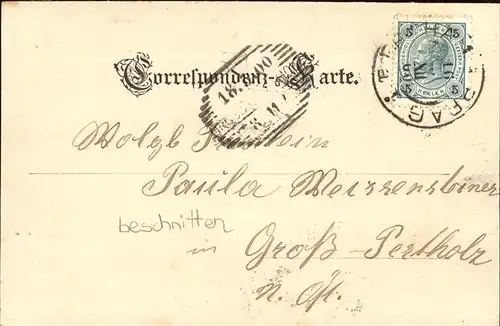 Correspondenz-Karte.
PRAG
5 5
5 5
18.
Wolgb Fräulein
Paula Weissensteiner
beschnitten
in Groß-Pertholz
N. Öst.